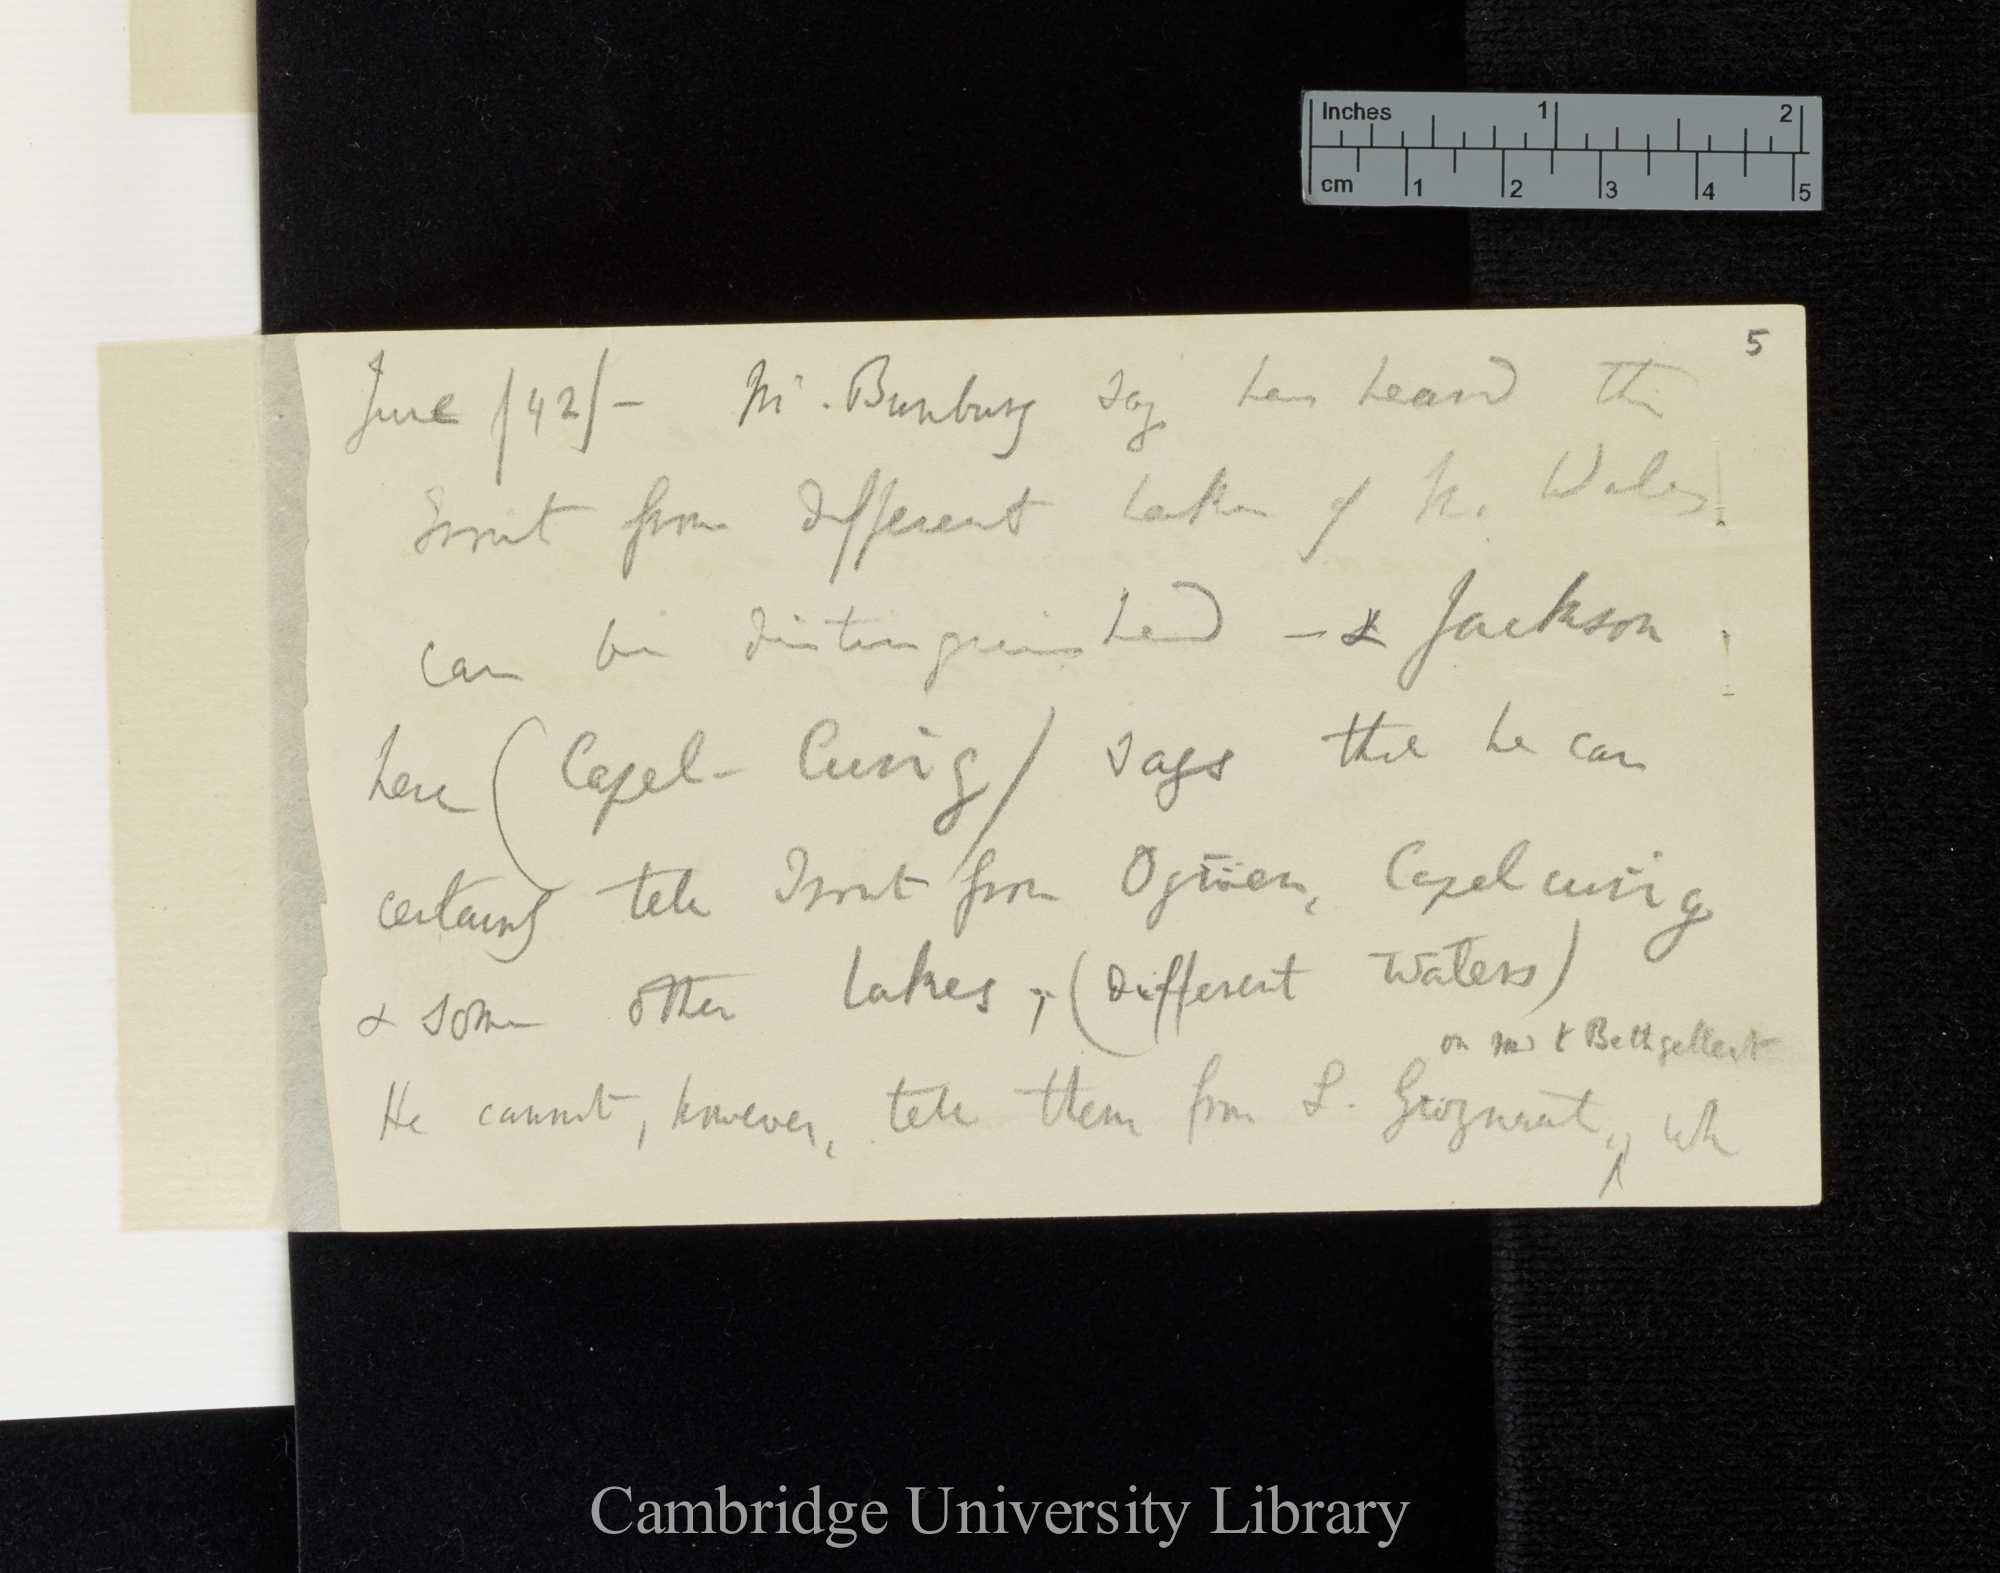 Inches 1 2
cm 1 2 3 4 5
5
June /42/– Mr. Bunbury says has heard that
Trout from different Lakes of N. Wales
can be distinguished – & Jackson
here (Capel-Curig) says that he can
certainly tell Trout from Ogwen, Capel curig
& some other lakes, (different waters)
on road to Bethgellert
He cannot, however, tell them from L. wh
Cambridge University Library